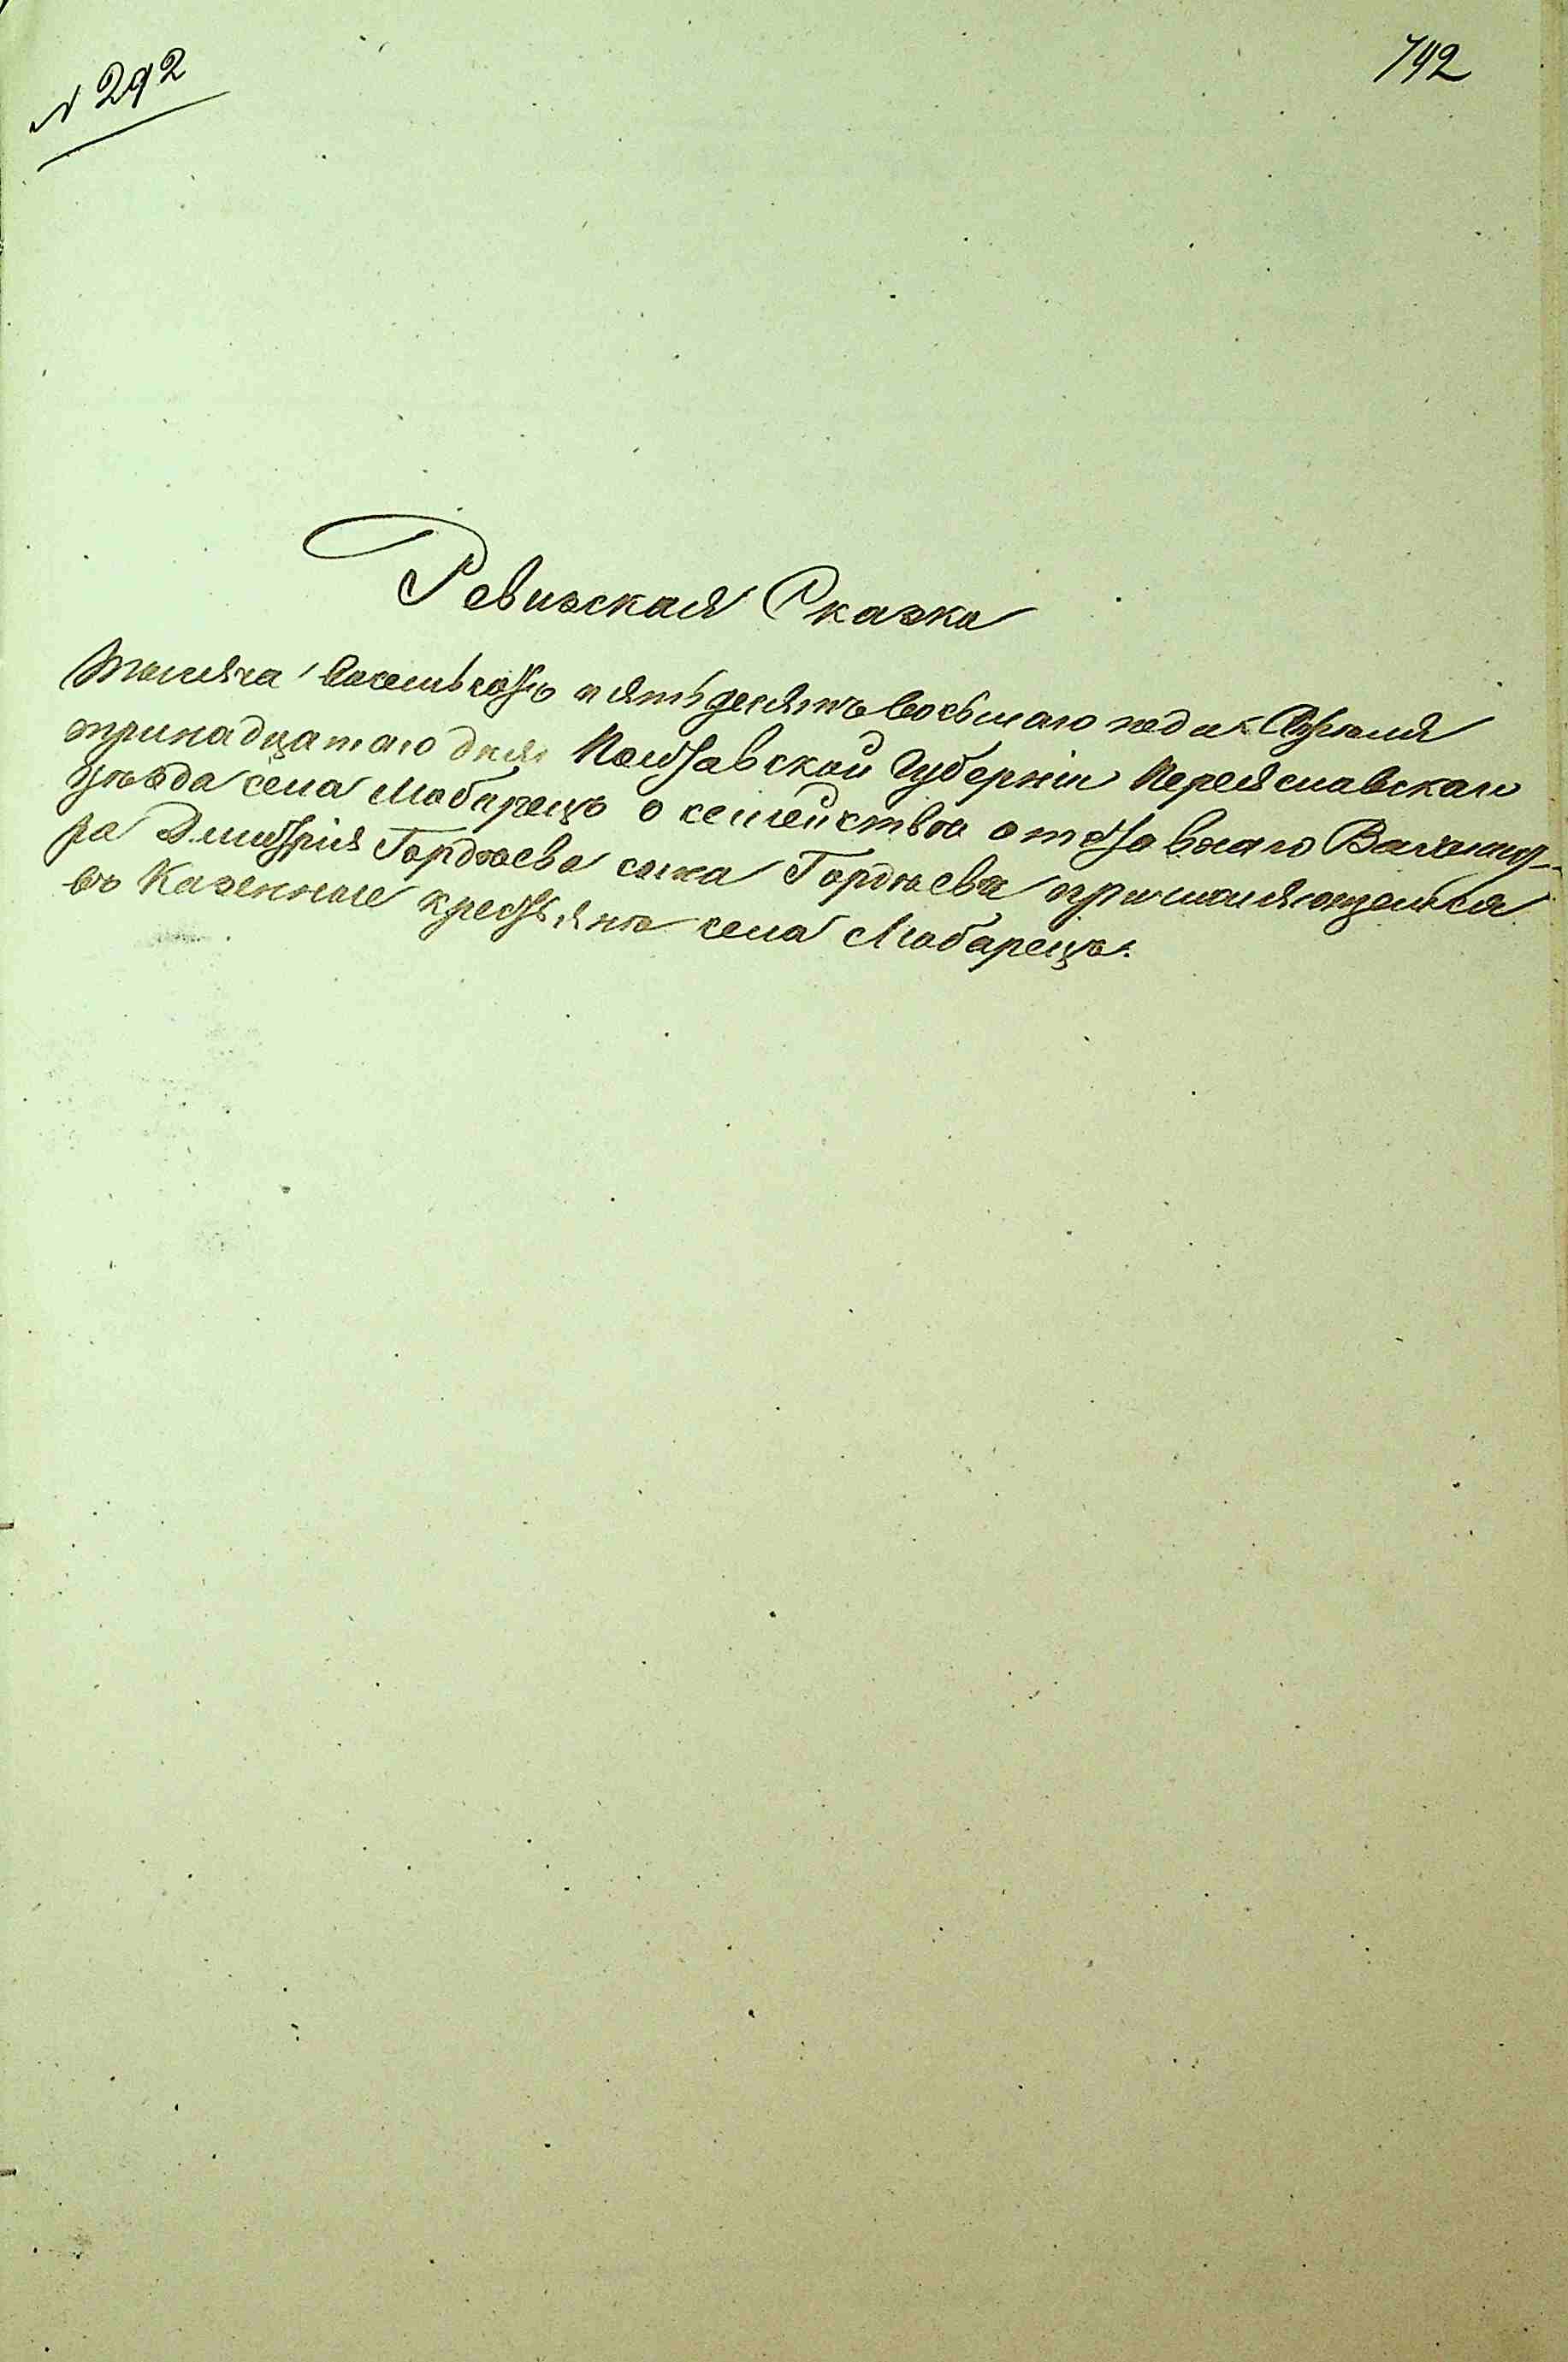 № 292
792
Ревизская Сказка
Тысяча восемьсотъ пятьдесятъ восьмаго года Апреля
тринадцатаго дня Полтавской Губерніи Переяславскаго
уѣзда села Любарецъ о семействѣ отставнаго
ра Дмитрія Гордѣева сына Гордѣева причисляющемся
въ Казенные крестьяне села Любарецъ.